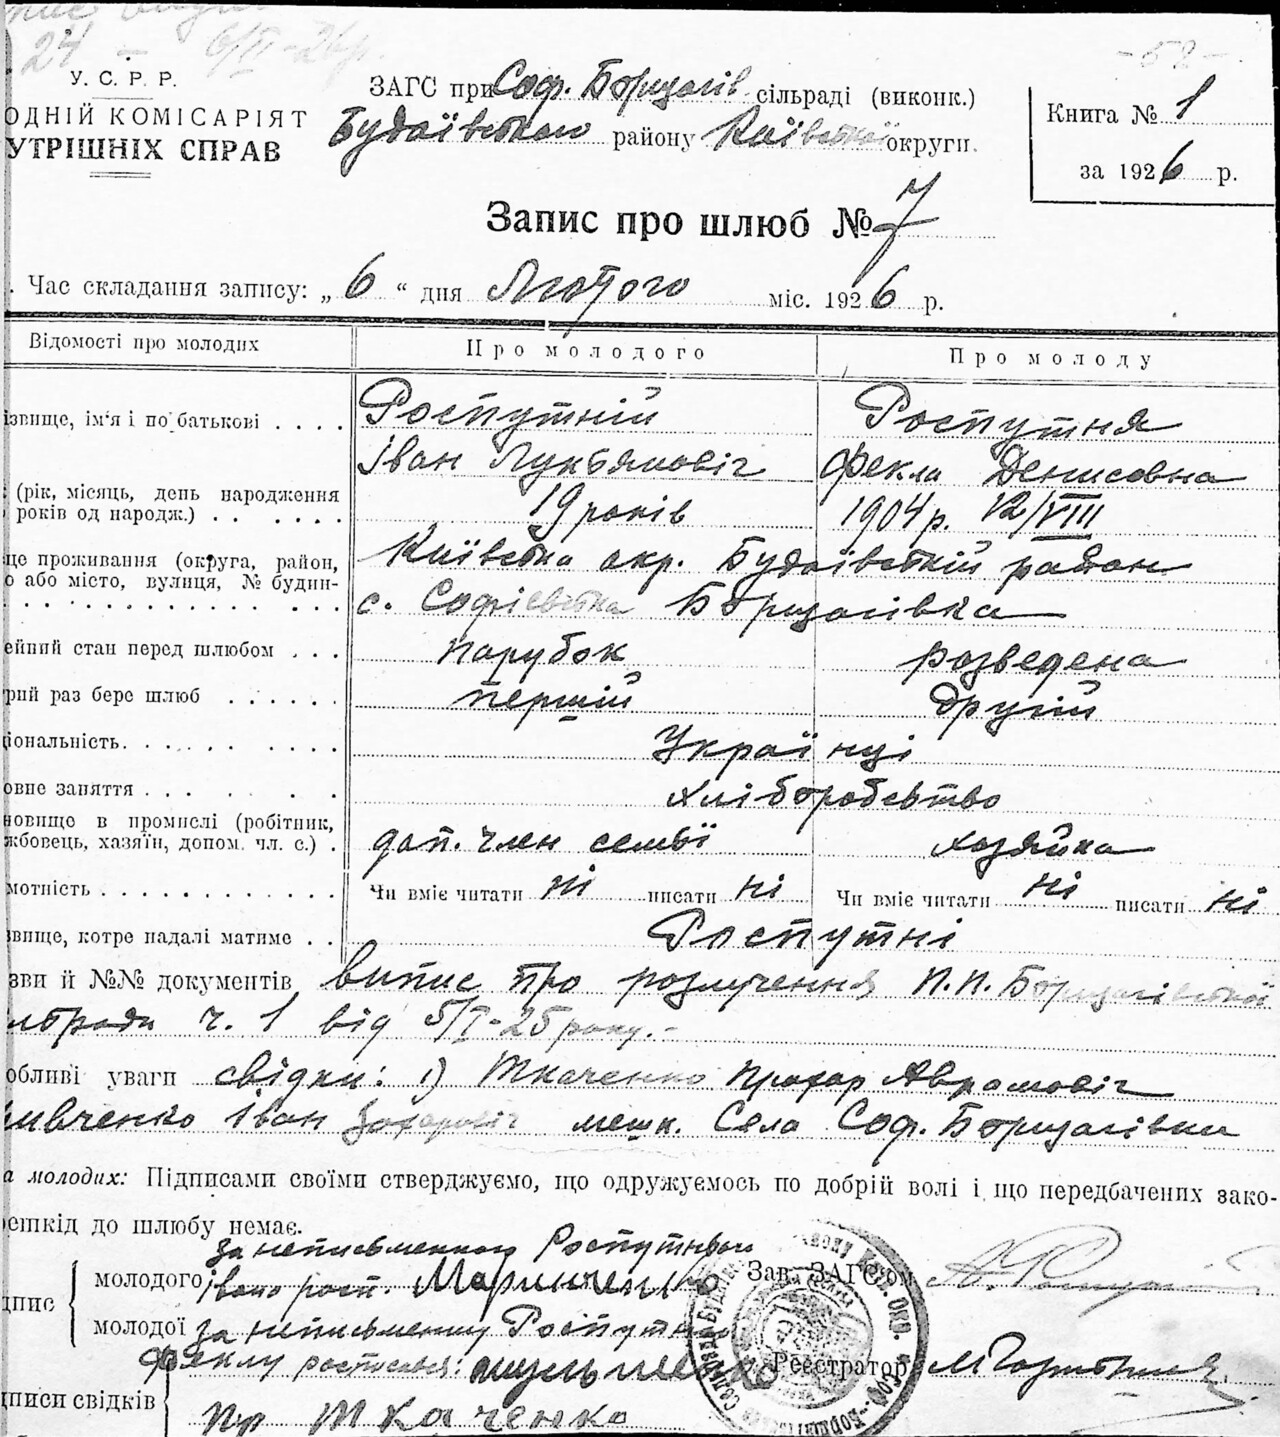 24 – 6/II-26р.
- 52 -
У. С. Р. Р.
ОДНІЙ КОМІСАРІЯТ
УТРІШНІХ СПРАВ
ЗАГС при Соф. Борщагів. сільраді (виконк.)
Будаївського району Київської округи.
Книга № 1
за 1926 р.
Запис про шлюб № 7
. Час складання запису: „ 6 “ дня Лютого міс. 1926 р.
Відомості про молодих Про молодого Про молоду
ізвище, ім'я і по батькові . . . . Роспутній Роспутня
Іван Лукьямовіч Фекла Денисовна
(рік, місяць, день народження
років од народж.) . . . . . . 19 років 1904 р. 12/VIII
це проживання (округа, район,
о або місто, вулиця, № будин-
Київська окр. Будаївській район
с. Софієвська Борщагівка
ейний стан перед шлюбом . . . парубок розведена
рий раз бере шлюб . . . . . . першій другій
іональність. . . . . . . . . . Українці
овне заняття . . . . . . . Хліборобство
новище в промислі (робітник,
жбовець, хазяїн, допом. чл. с.) . доп. член семьї хозяйка
мотність . . . . . . . . . . . Чи вміє читати ні писати ні Чи вміє читати ні писати ні
звище, котре надалі матиме . . Роспутні
зви й №№ документів випис про розлучення П.П. Борщагівської
ч. 1 від 5/I-25 року.-
обливі уваги свідки: 1) Ткаченко Прохор Аврамовіч
Іван Захаровіч мешк. Села Соф. Борщагівки
а молодих: Підписами своїми стверджуємо, що одружуємось по добрій волі і що передбачених зако-
ешкід до шлюбу немає.
за неписьменного Роспутнього
молодого Івана росп. Маринченко
Зав. ЗАГС'ом
дпис
молодої за неписьменну Роспутню
Феклу росписався:
Реєстратор
дписи свідків
Пр Ткаченко